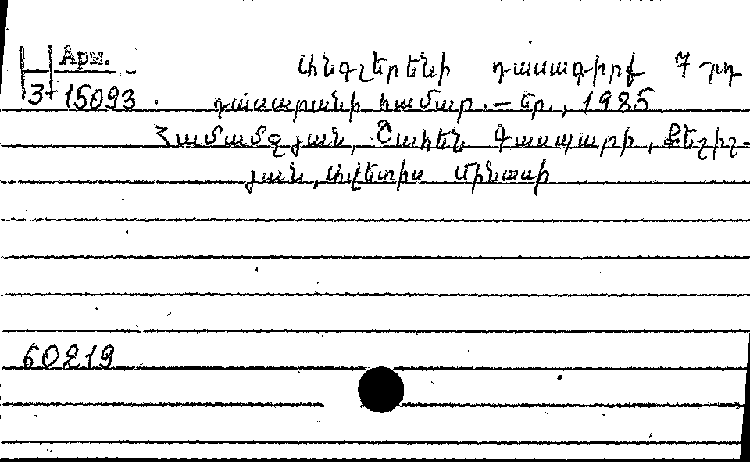 Арм.
37 15093
Անգլերենի դասագիրք 7-րդ
դասարանի համար. – Եր., 1985
Համամջյան, Շահեն Գասպարի, Քեշիշ-
յան, Ավետիս Մինասի
60219